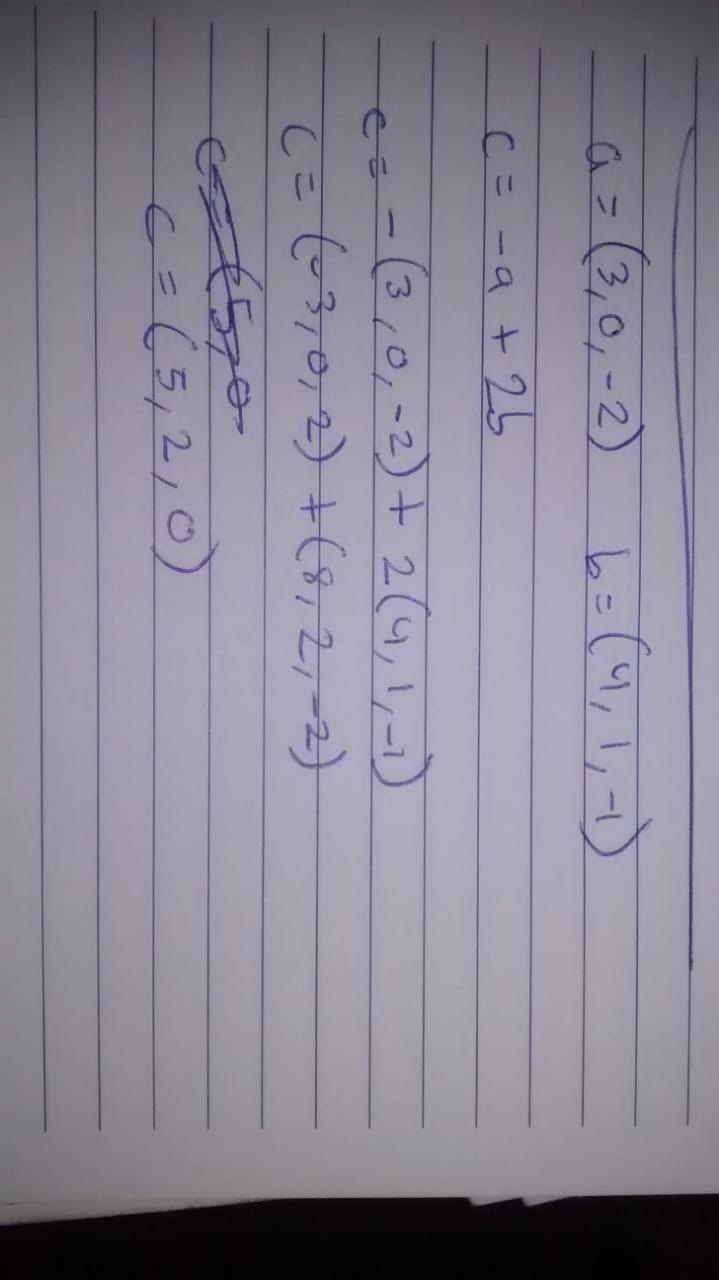 a = (3,0,-2) b = (4,1,-1)
c = -a + 2b
c = -(3,0,-2) + 2(4,1,-1)
c = (-3,0,2) + (8,2,-2)
c = (5,0
c = (5,2,0)